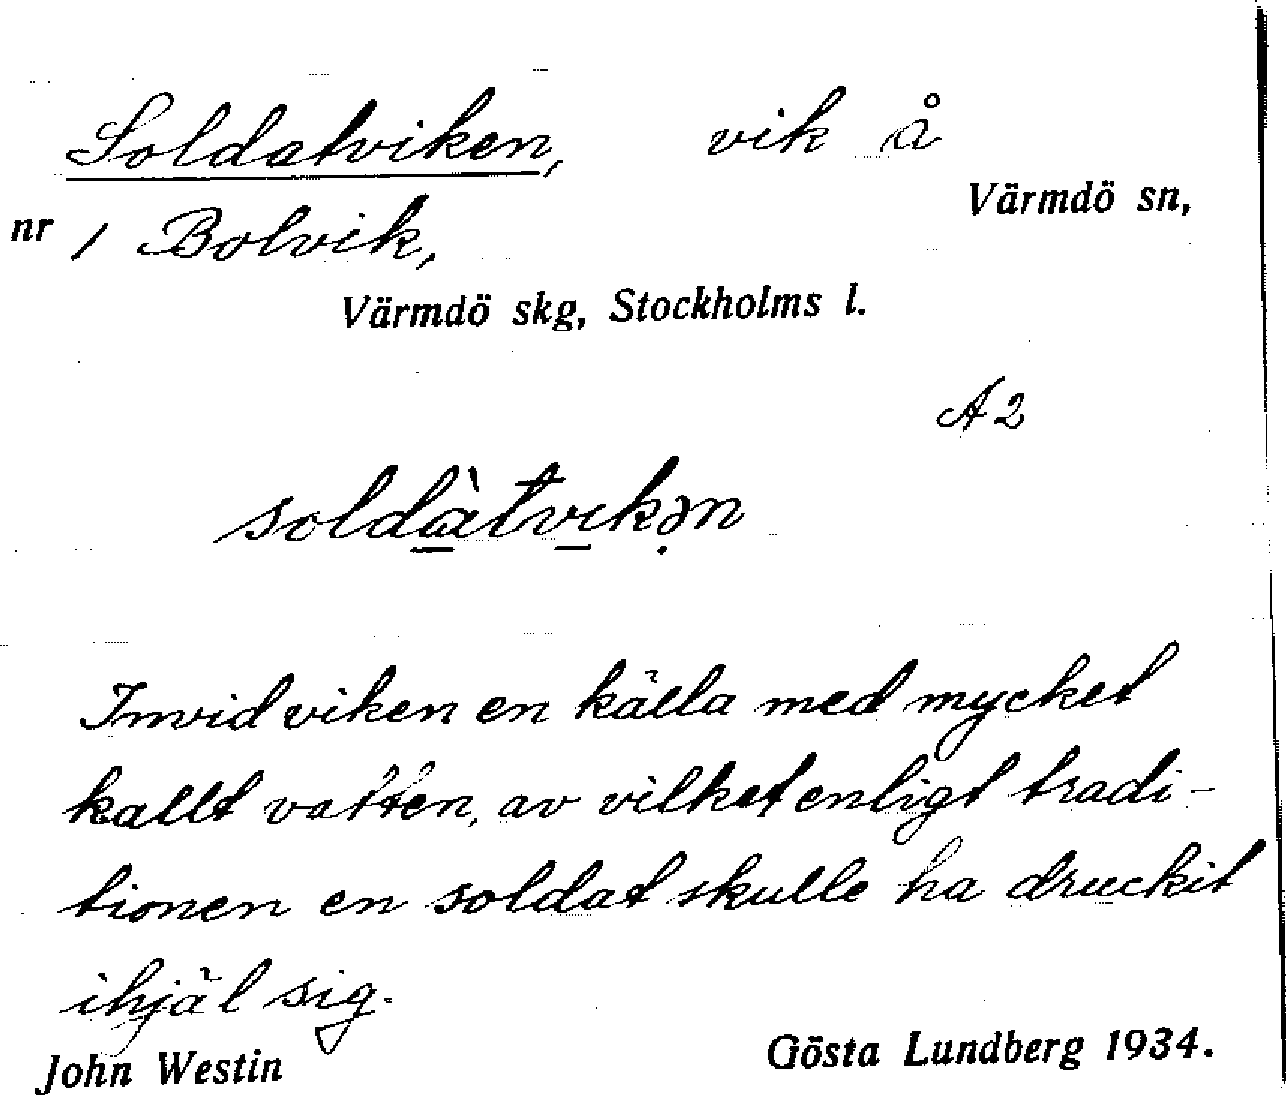 Soldatviken, vik å
Värmdö sn,
nr 1 Bolvik,
Värmdö skg, Stockholms l.
A2
soldàtvikən
Invid viken en källa med mycket
kallt vatten, av vilket enligt tradi-
tionen en soldat skulle ha druckit
ihjäl sig.
John Westin Gösta Lundberg 1934.